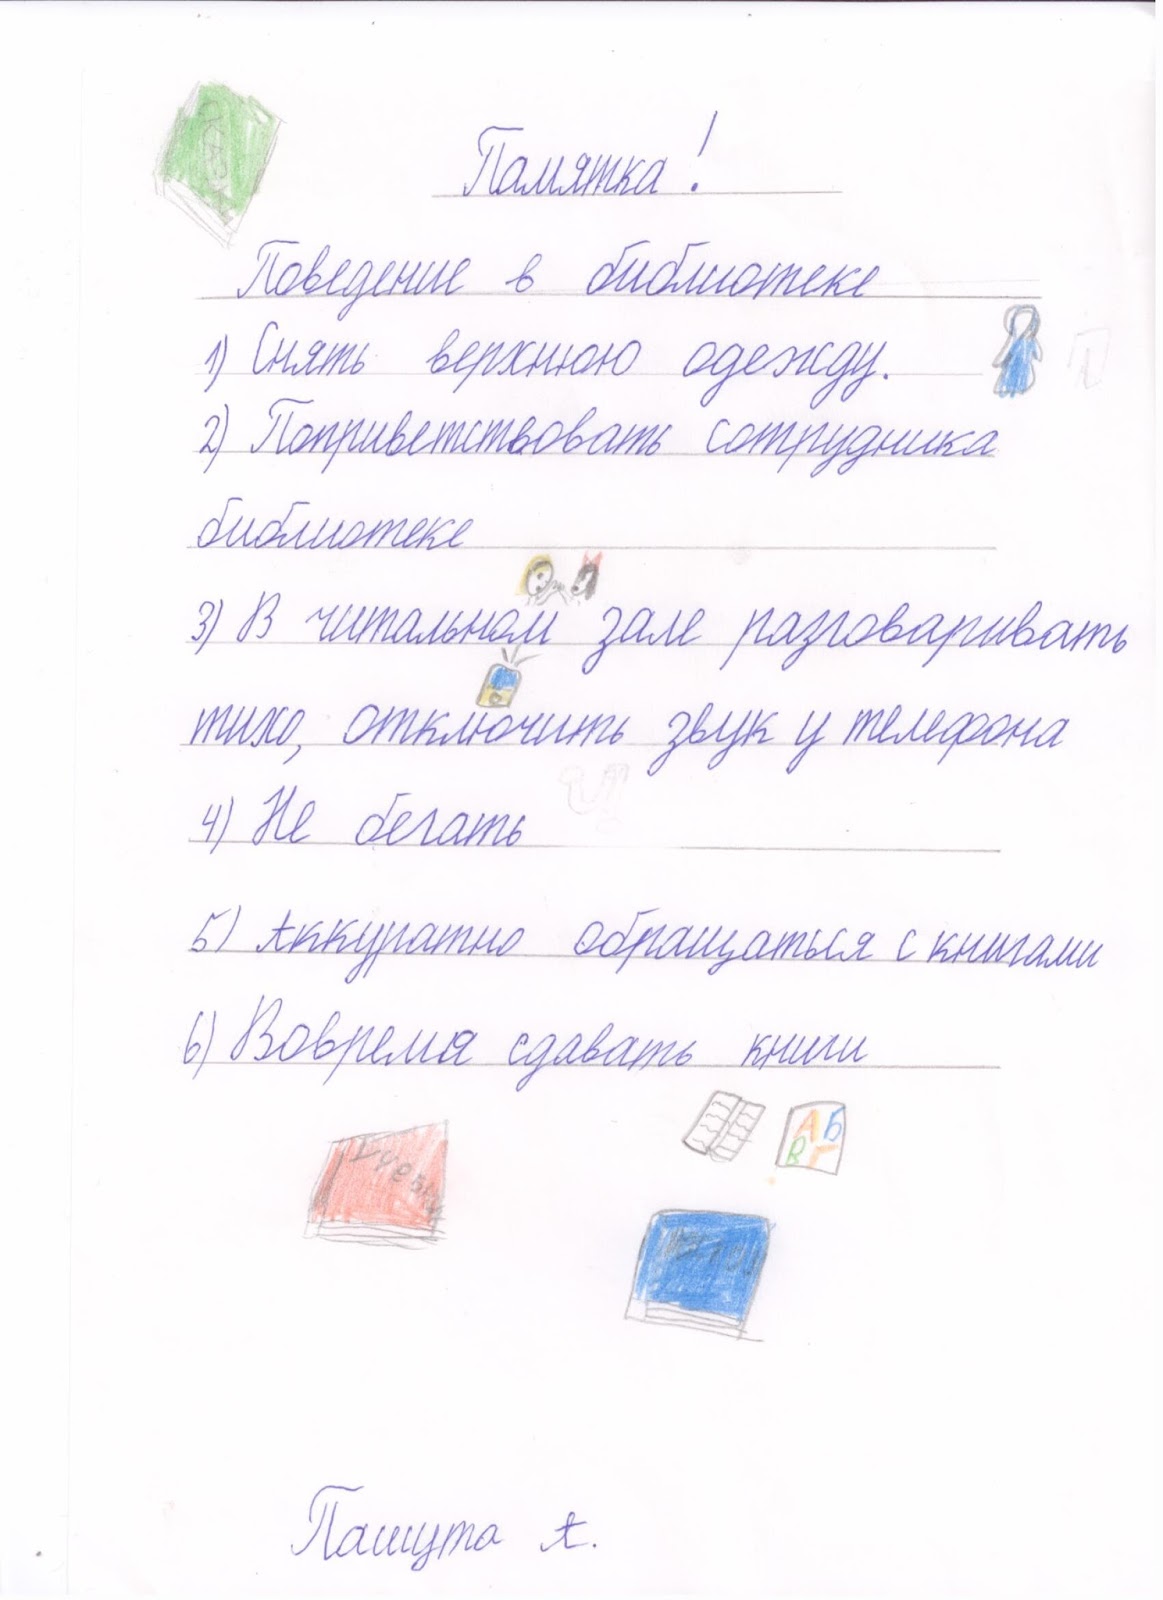 Памятка!
Поведение в библиотеке
1) Снять верхнюю одежду.
2) Поприветствовать сотрудника
библиотеке
3) В читальном зале разговаривать
тихо, отключить звук у телефона
4) Не бегать
5) Аккуратно обращаться с книгами
6) Вовремя сдавать книги
А Б
В Г
Пашута А.